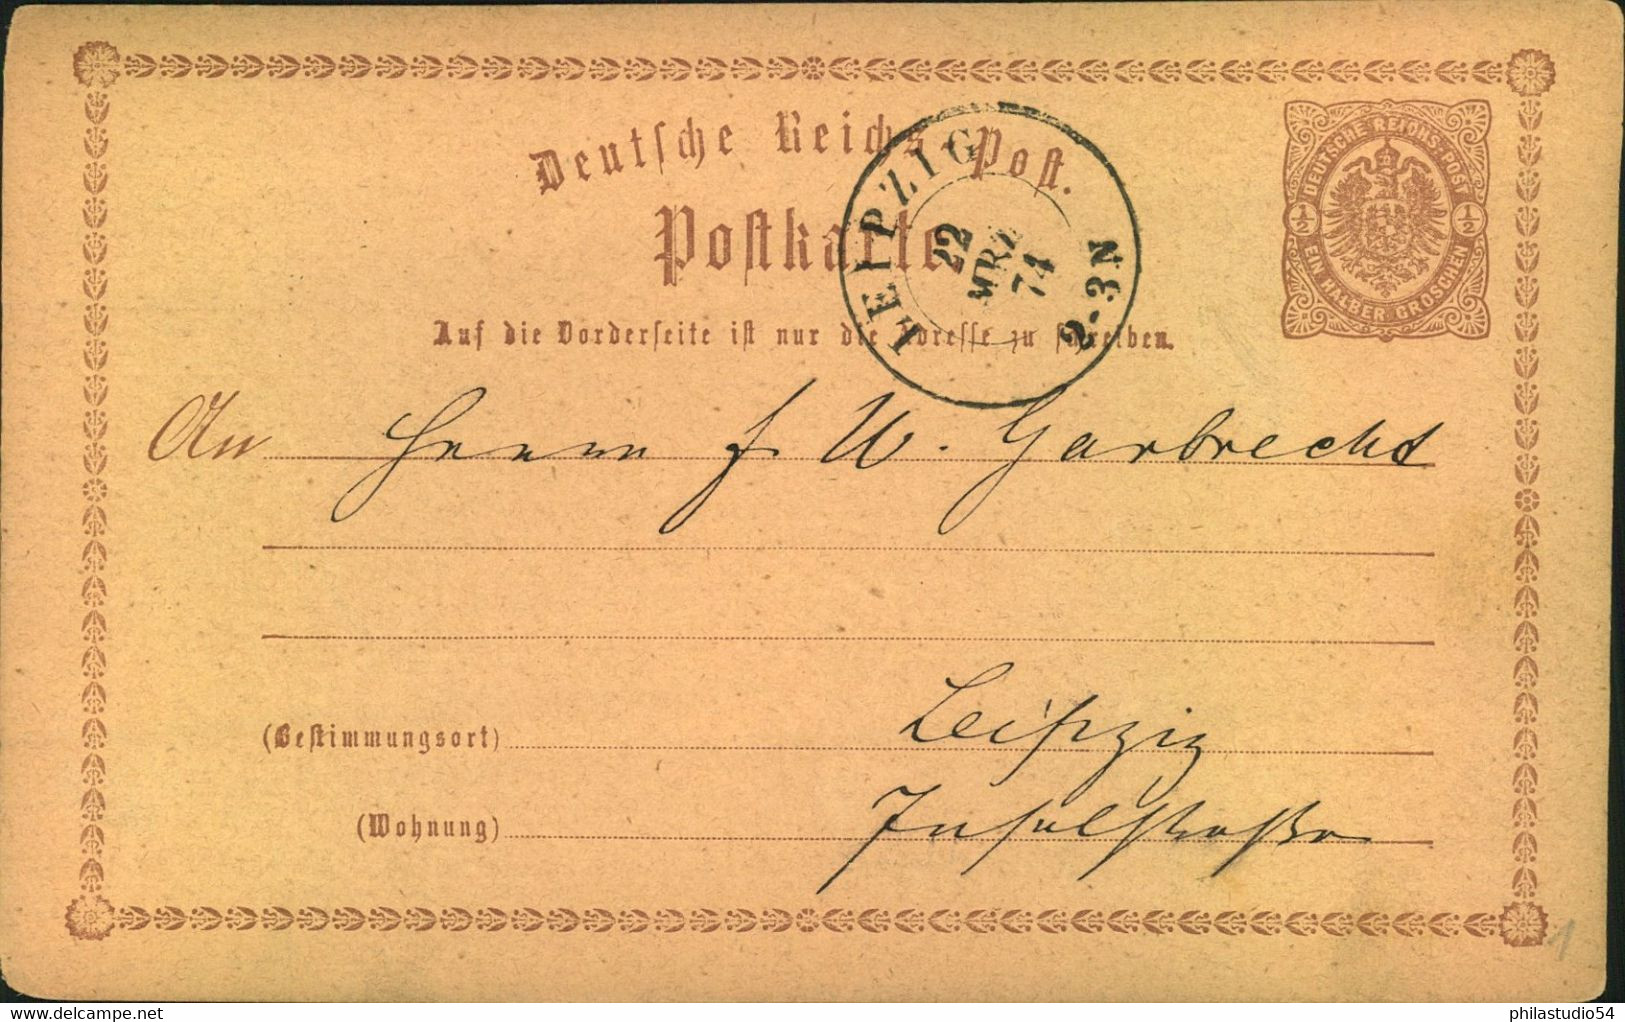 Deutsche Reichs-Post.
Postkarte
Auf die Vorderseite ist nur die Adresse zu schreiben.
LEIPZIG
22
MRZ
74
2-3N
DEUTSCHE REICHS-POST
1/2 1/2
EIN HALBER GROSCHEN
An Herrn F. W. Garbrecht
(Bestimmungsort) Leipzig
(Wohnung) Inselstraße
1
www.delcampe.net
philastudio54